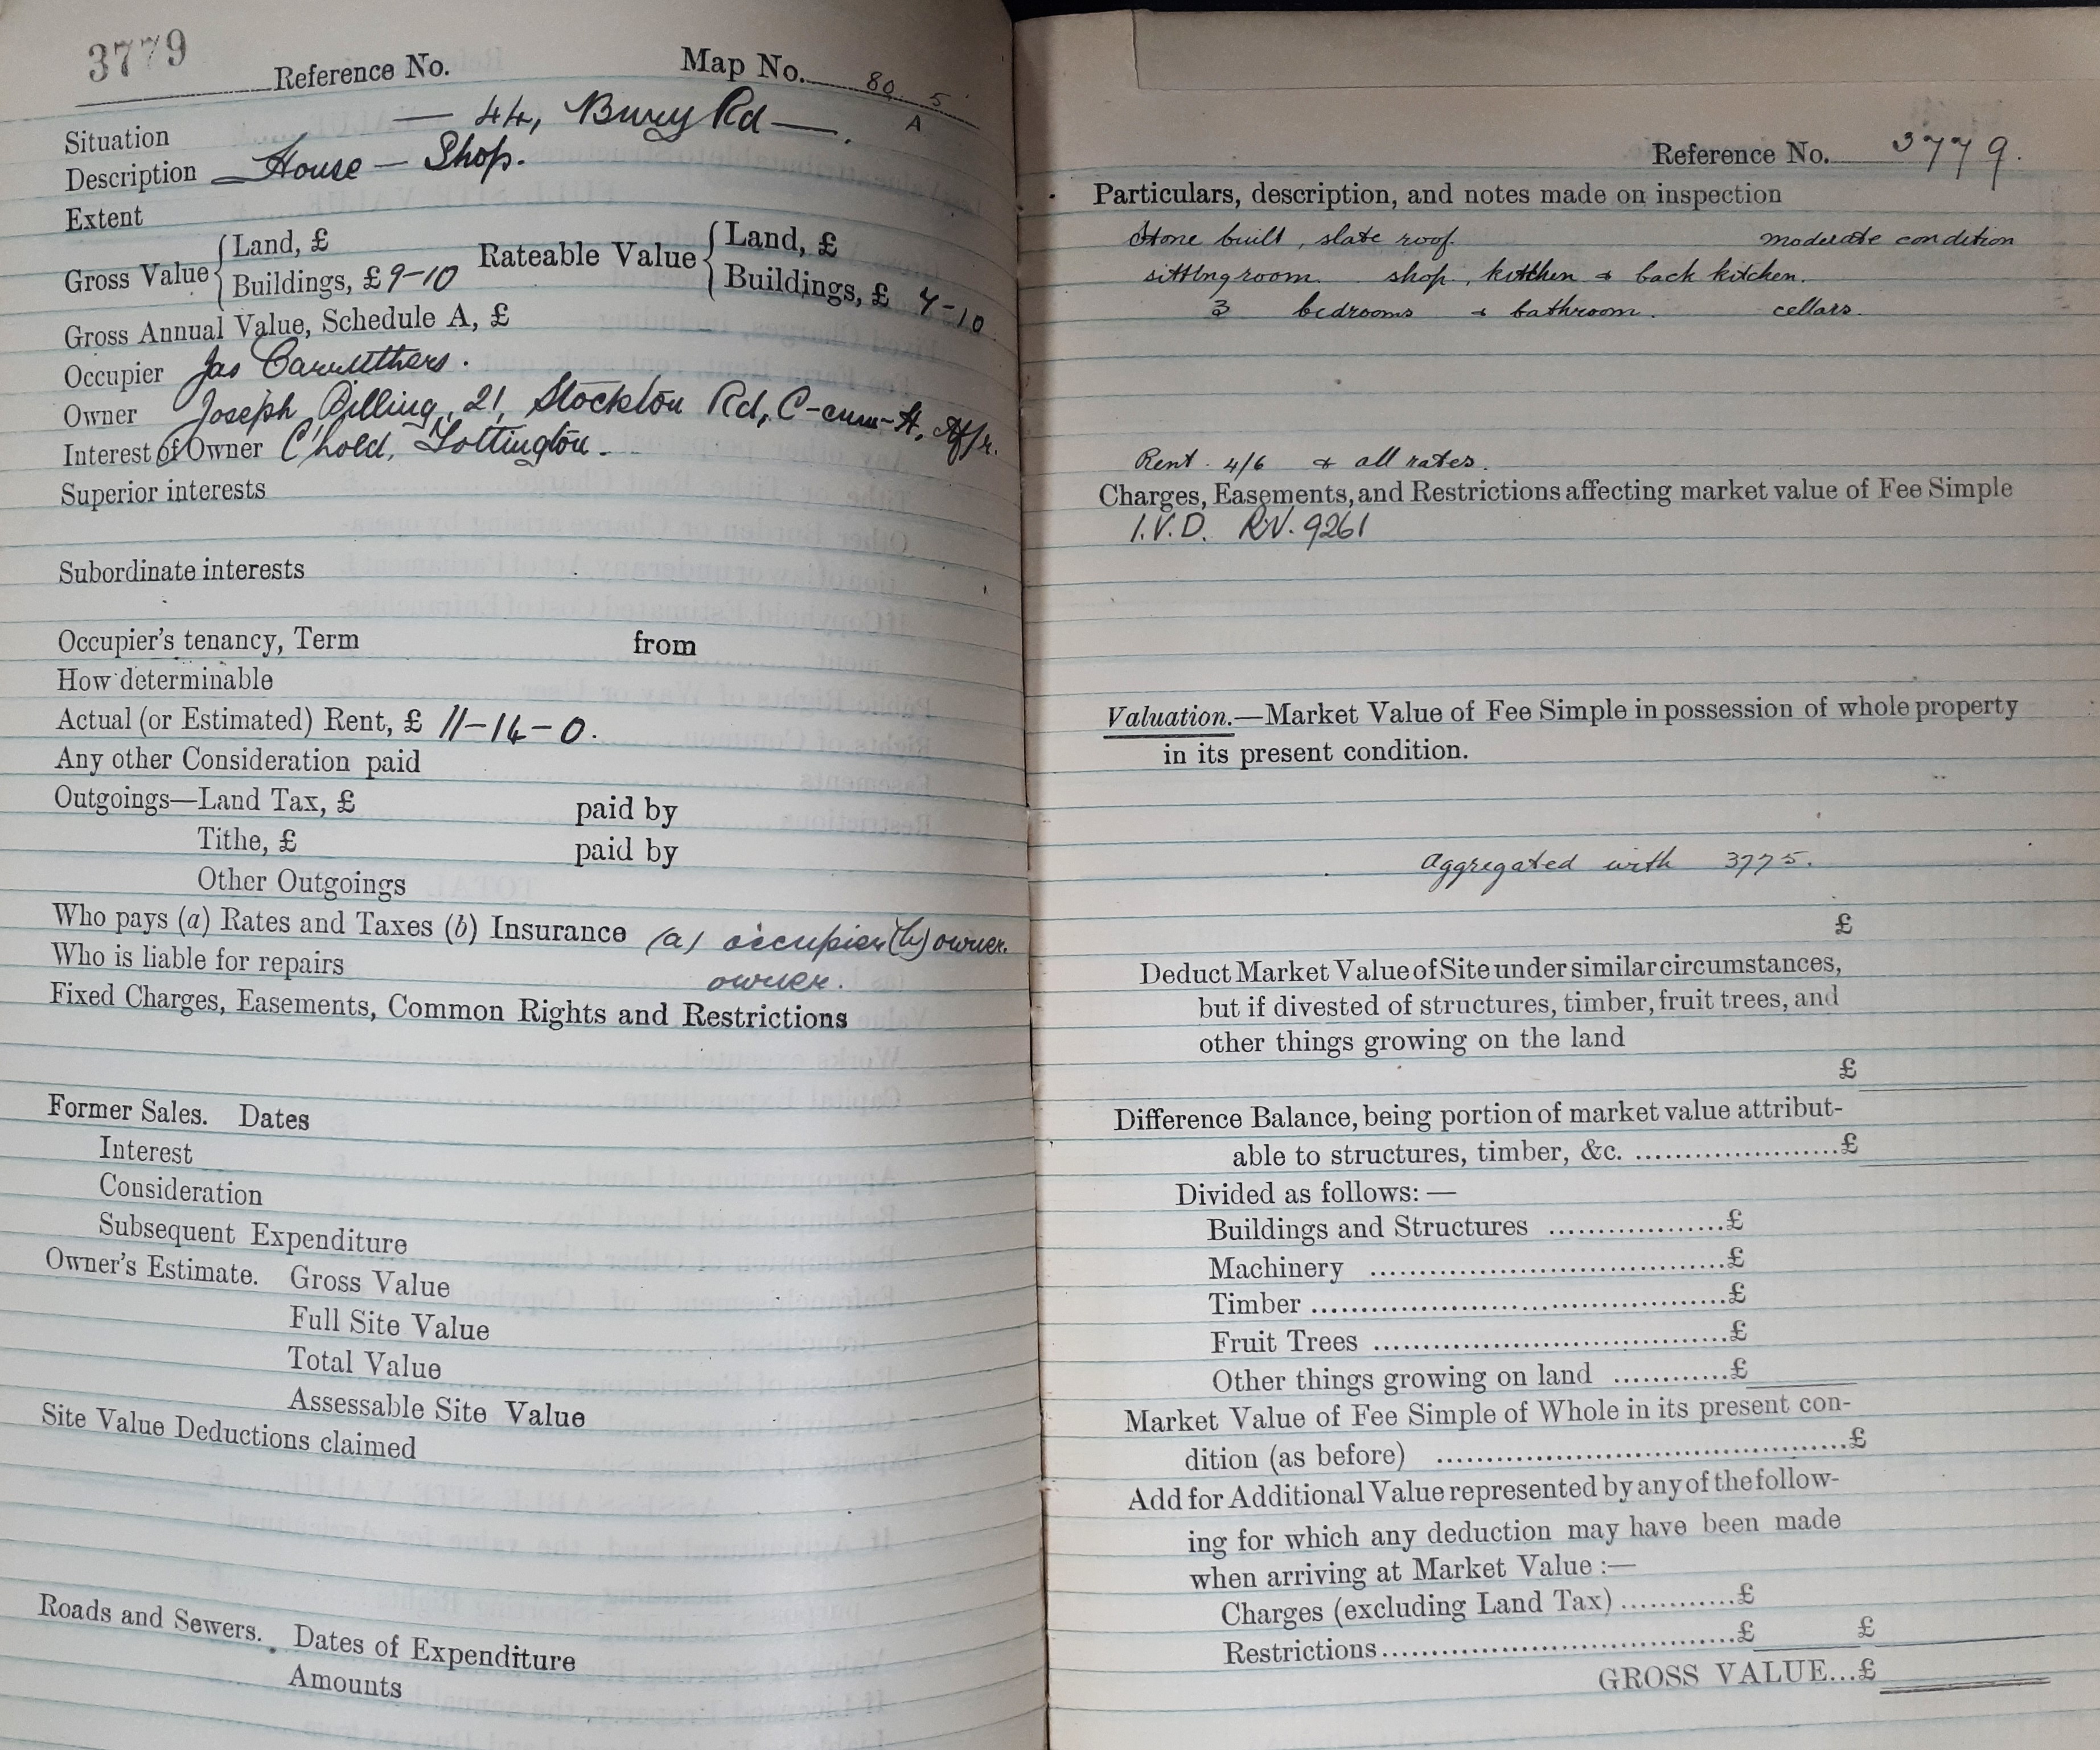 3779
Reference No. Map No. 80 5
A
Situation — 44, Bury Rd —.
Description House — Shop.
Extent
Gross Value { Land, £ Rateable Value { Land, £
Buildings, £ 9-10 Buildings, £ 7-10
Gross Annual Value, Schedule A, £
Occupier Jas Carruthers.
Owner Joseph Billing, 21, Stockton Rd, C-cum-H,
Interest of Owner C'hold, Tottington.
Superior interests
Subordinate interests
Occupier's tenancy, Term from
How determinable
Actual (or Estimated) Rent, £ 11-14-0.
Any other Consideration paid
Outgoings—Land Tax, £ paid by
Tithe, £ paid by
Other Outgoings
Who pays (a) Rates and Taxes (b) Insurance (a) occupier (b) owner.
Who is liable for repairs owner.
Fixed Charges, Easements, Common Rights and Restrictions
Former Sales. Dates
Interest
Consideration
Subsequent Expenditure
Owner's Estimate. Gross Value
Full Site Value
Total Value
Assessable Site Value
Site Value Deductions claimed
Roads and Sewers. Dates of Expenditure
Amounts
Reference No. 3779.
Particulars, description, and notes made on inspection
Stone built, slate roof. moderate condition
sitting room shop, kitchen & back kitchen.
3 bedrooms & bathroom. cellars.
Rent 4/6 & all rates.
Charges, Easements, and Restrictions affecting market value of Fee Simple
I.V.D. RN. 9261
Valuation.—Market Value of Fee Simple in possession of whole property
in its present condition.
Aggregated with 3775.
£
Deduct Market Value of Site under similar circumstances,
but if divested of structures, timber, fruit trees, and
other things growing on the land
£
Difference Balance, being portion of market value attribut-
able to structures, timber, &c. ......................£
Divided as follows: —
Buildings and Structures ..................£
Machinery .....................................£
Timber ...........................................£
Fruit Trees .....................................£
Other things growing on land ............£
Market Value of Fee Simple of Whole in its present con-
dition (as before) ...........................................£
Add for Additional Value represented by any of the follow-
ing for which any deduction may have been made
when arriving at Market Value :—
Charges (excluding Land Tax) ............£
Restrictions.....................................£ £
GROSS VALUE...£